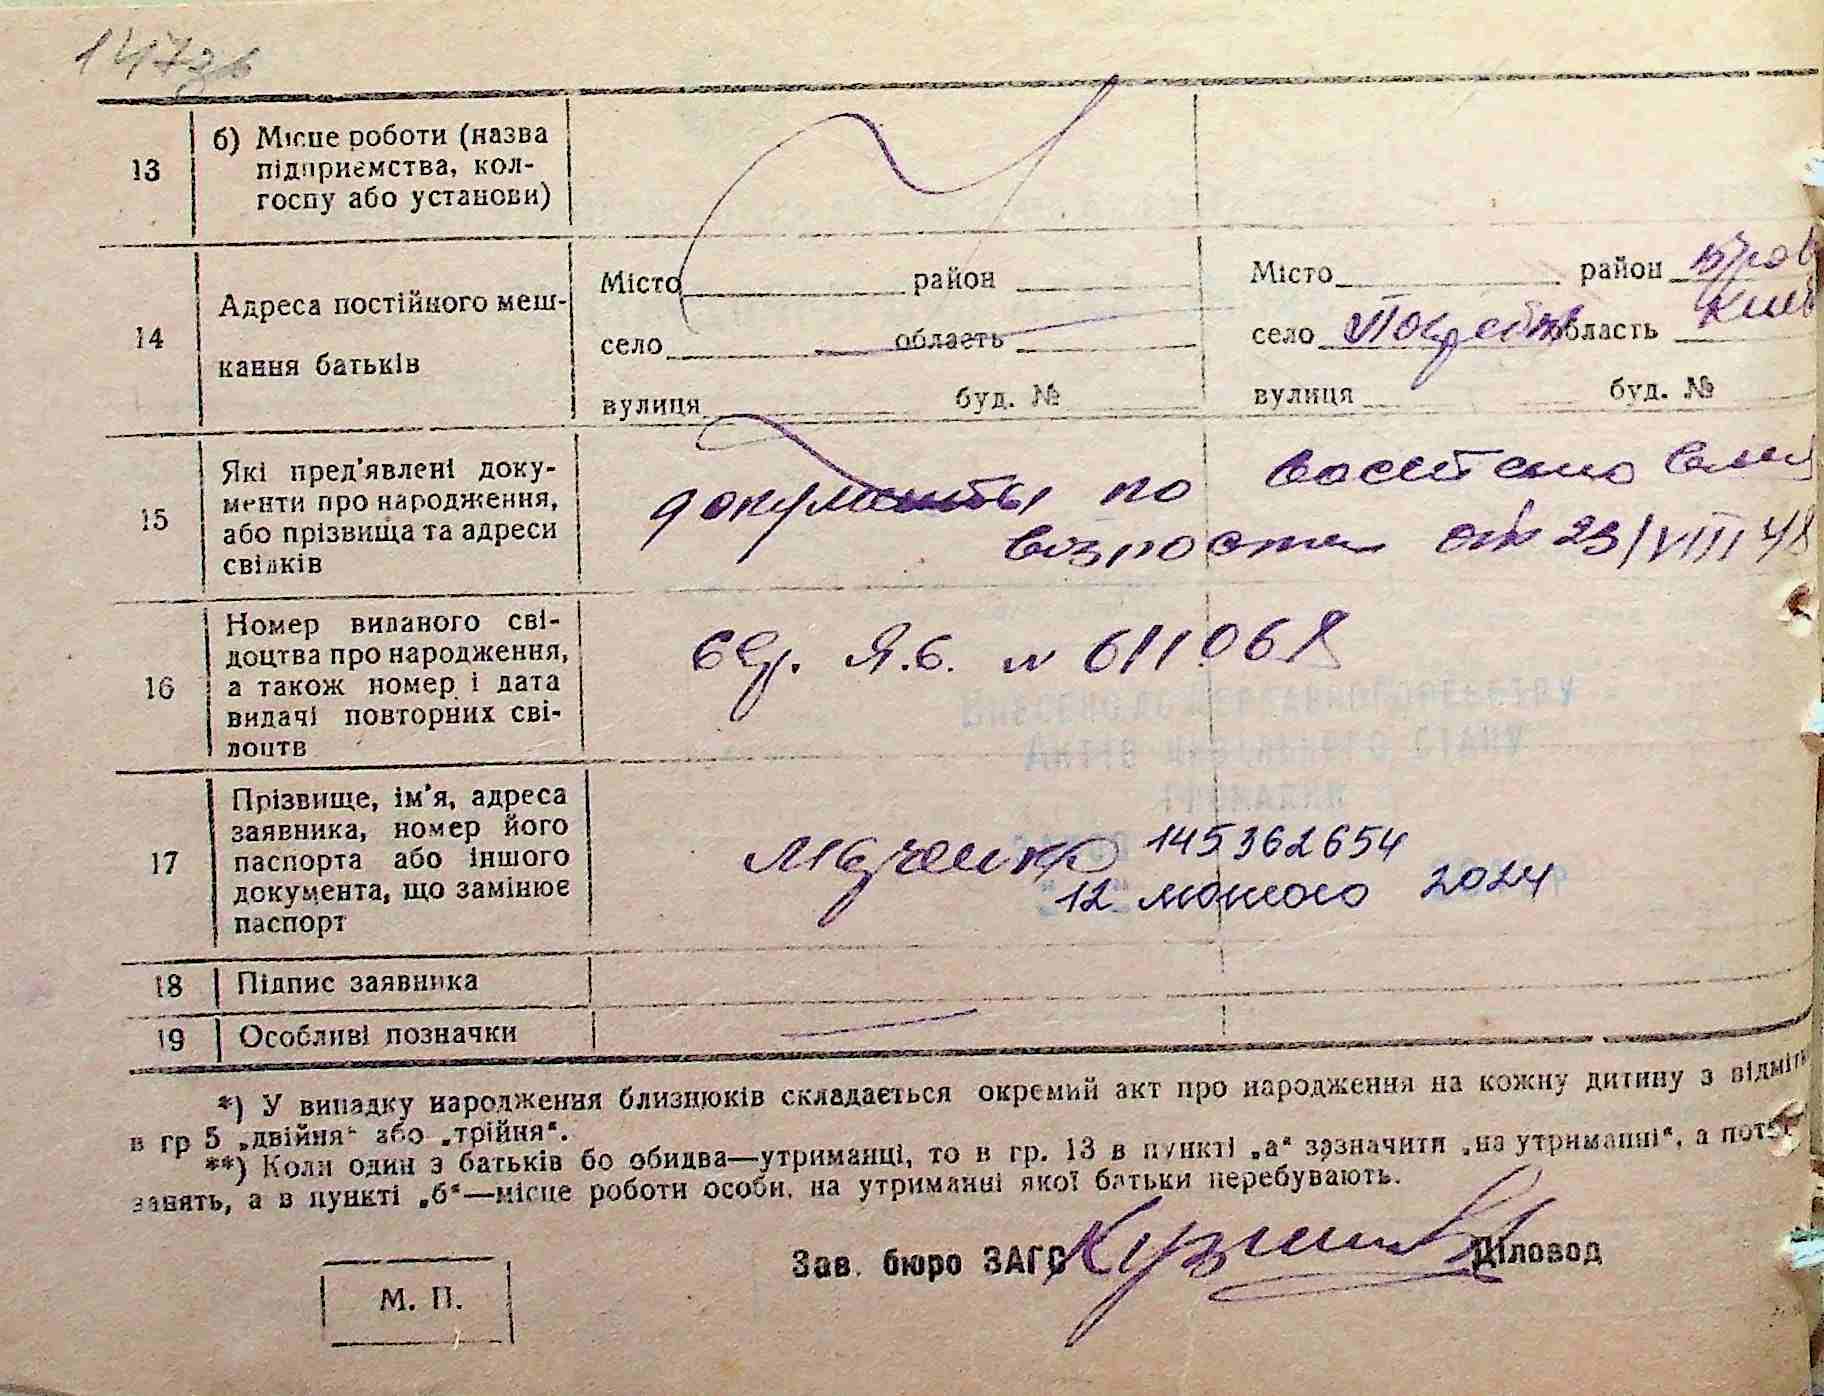 147зв
13 б) Місце роботи (назва
підприємства, кол-
госпу або установи)
14 Адреса постійного меш-
кання батьків
Місто район
село область
вулиця буд. №
Місто район Бров
село область Киев
вулиця буд. №
15 Які пред'явлені доку-
менти про народження,
або прізвища та адреси
свідків
документы по
возроста от 23/VIII 48
16 Номер виданого сві-
доцтва про народження,
а також номер і дата
видачі повторних сві-
доцтв
сер. Я.б. № 611068
17 Прізвище, ім'я, адреса
заявника, номер його
паспорта або іншого
документа, що замінює
паспорт
145362654
12 лютого 2024
18 Підпис заявника
19 Особливі позначки
*) У випадку народження близнюків складається окремий акт про народження на кожну дитину з відміткою
в гр 5 „двійня“ або „трійня“.
**) Коли один з батьків бо обидва—утриманці, то в гр. 13 в пункті „а“ зазначити „на утриманні“, а потім
занять, а в пункті „б“—місце роботи особи, на утриманні якої батьки перебувають.
Зав. бюро ЗАГС Діловод
М. П.